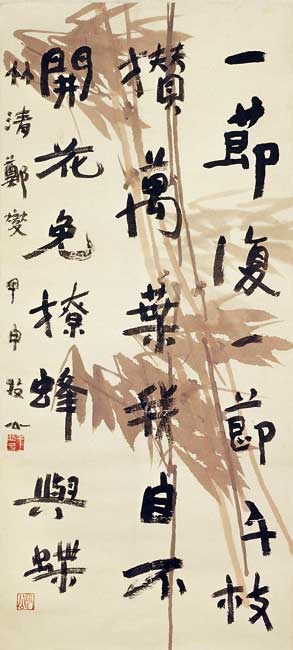 一節復一節千枝
攢萬葉我自不
開花免撩蜂與蝶
竹清鄭燮甲申